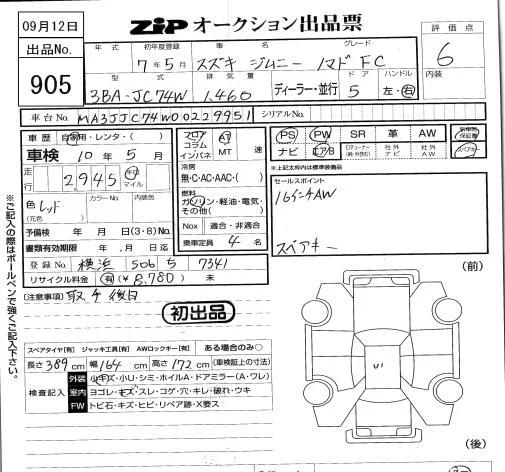 09月12日
ZIP オークション出品票
出品No. 905
年式 初年度登録 車名 グレード
7年5月 スズキ ジムニー ノマド FC
評価点 6
内装
型式 排気量 ドア ハンドル
3BA-JC74W 1,460 ディーラー・並行 5 左・右
車台No. MA3JJC74W00229951 シリアルNo.
車歴 自家用・レンタ・( )
フロア コラム インパネ AT MT 速
PS PW SR 革 AW
ナビ エアB 社外ナビ 社外AW
新車時保証書
スペアキー
車検 10年5月
冷房
無・C・AC・AAC・( )
※上記太枠内は標準装備品
走行 2,945 km マイル
燃料
ガソリン・軽油・電気・その他( )
セールスポイント
16インチAW
スペアキー
色 レッド (元色)
カラーNo. 内装色
予備検 年 月 日(3・8)No.
Nox 適合・非適合
書類有効期限 年 月 日迄
乗車定員 4 名
登録No. 横浜 506 ち 7341
リサイクル料金 有(¥8,780) 未
(前)
(注意事項) 取予後日
初出品
※ご記入の際はボールペンで強くご記入下さい。
スペアタイヤ[有] ジャッキ工具[有] AWロックキー[有] ある場合のみ〇
長さ389cm 幅164cm 高さ172cm (車検証上の寸法)
検査記入
外装 小キズ・小リ・シミ・ホイルA・ドアミラー(A・ワレ)
室内 ヨゴレ・キズ・スレ・コゲ・穴・キレ・破れ・ウキ
FW トビ石・キズ・ヒビ・リペア跡・X要ス
U1
(後)